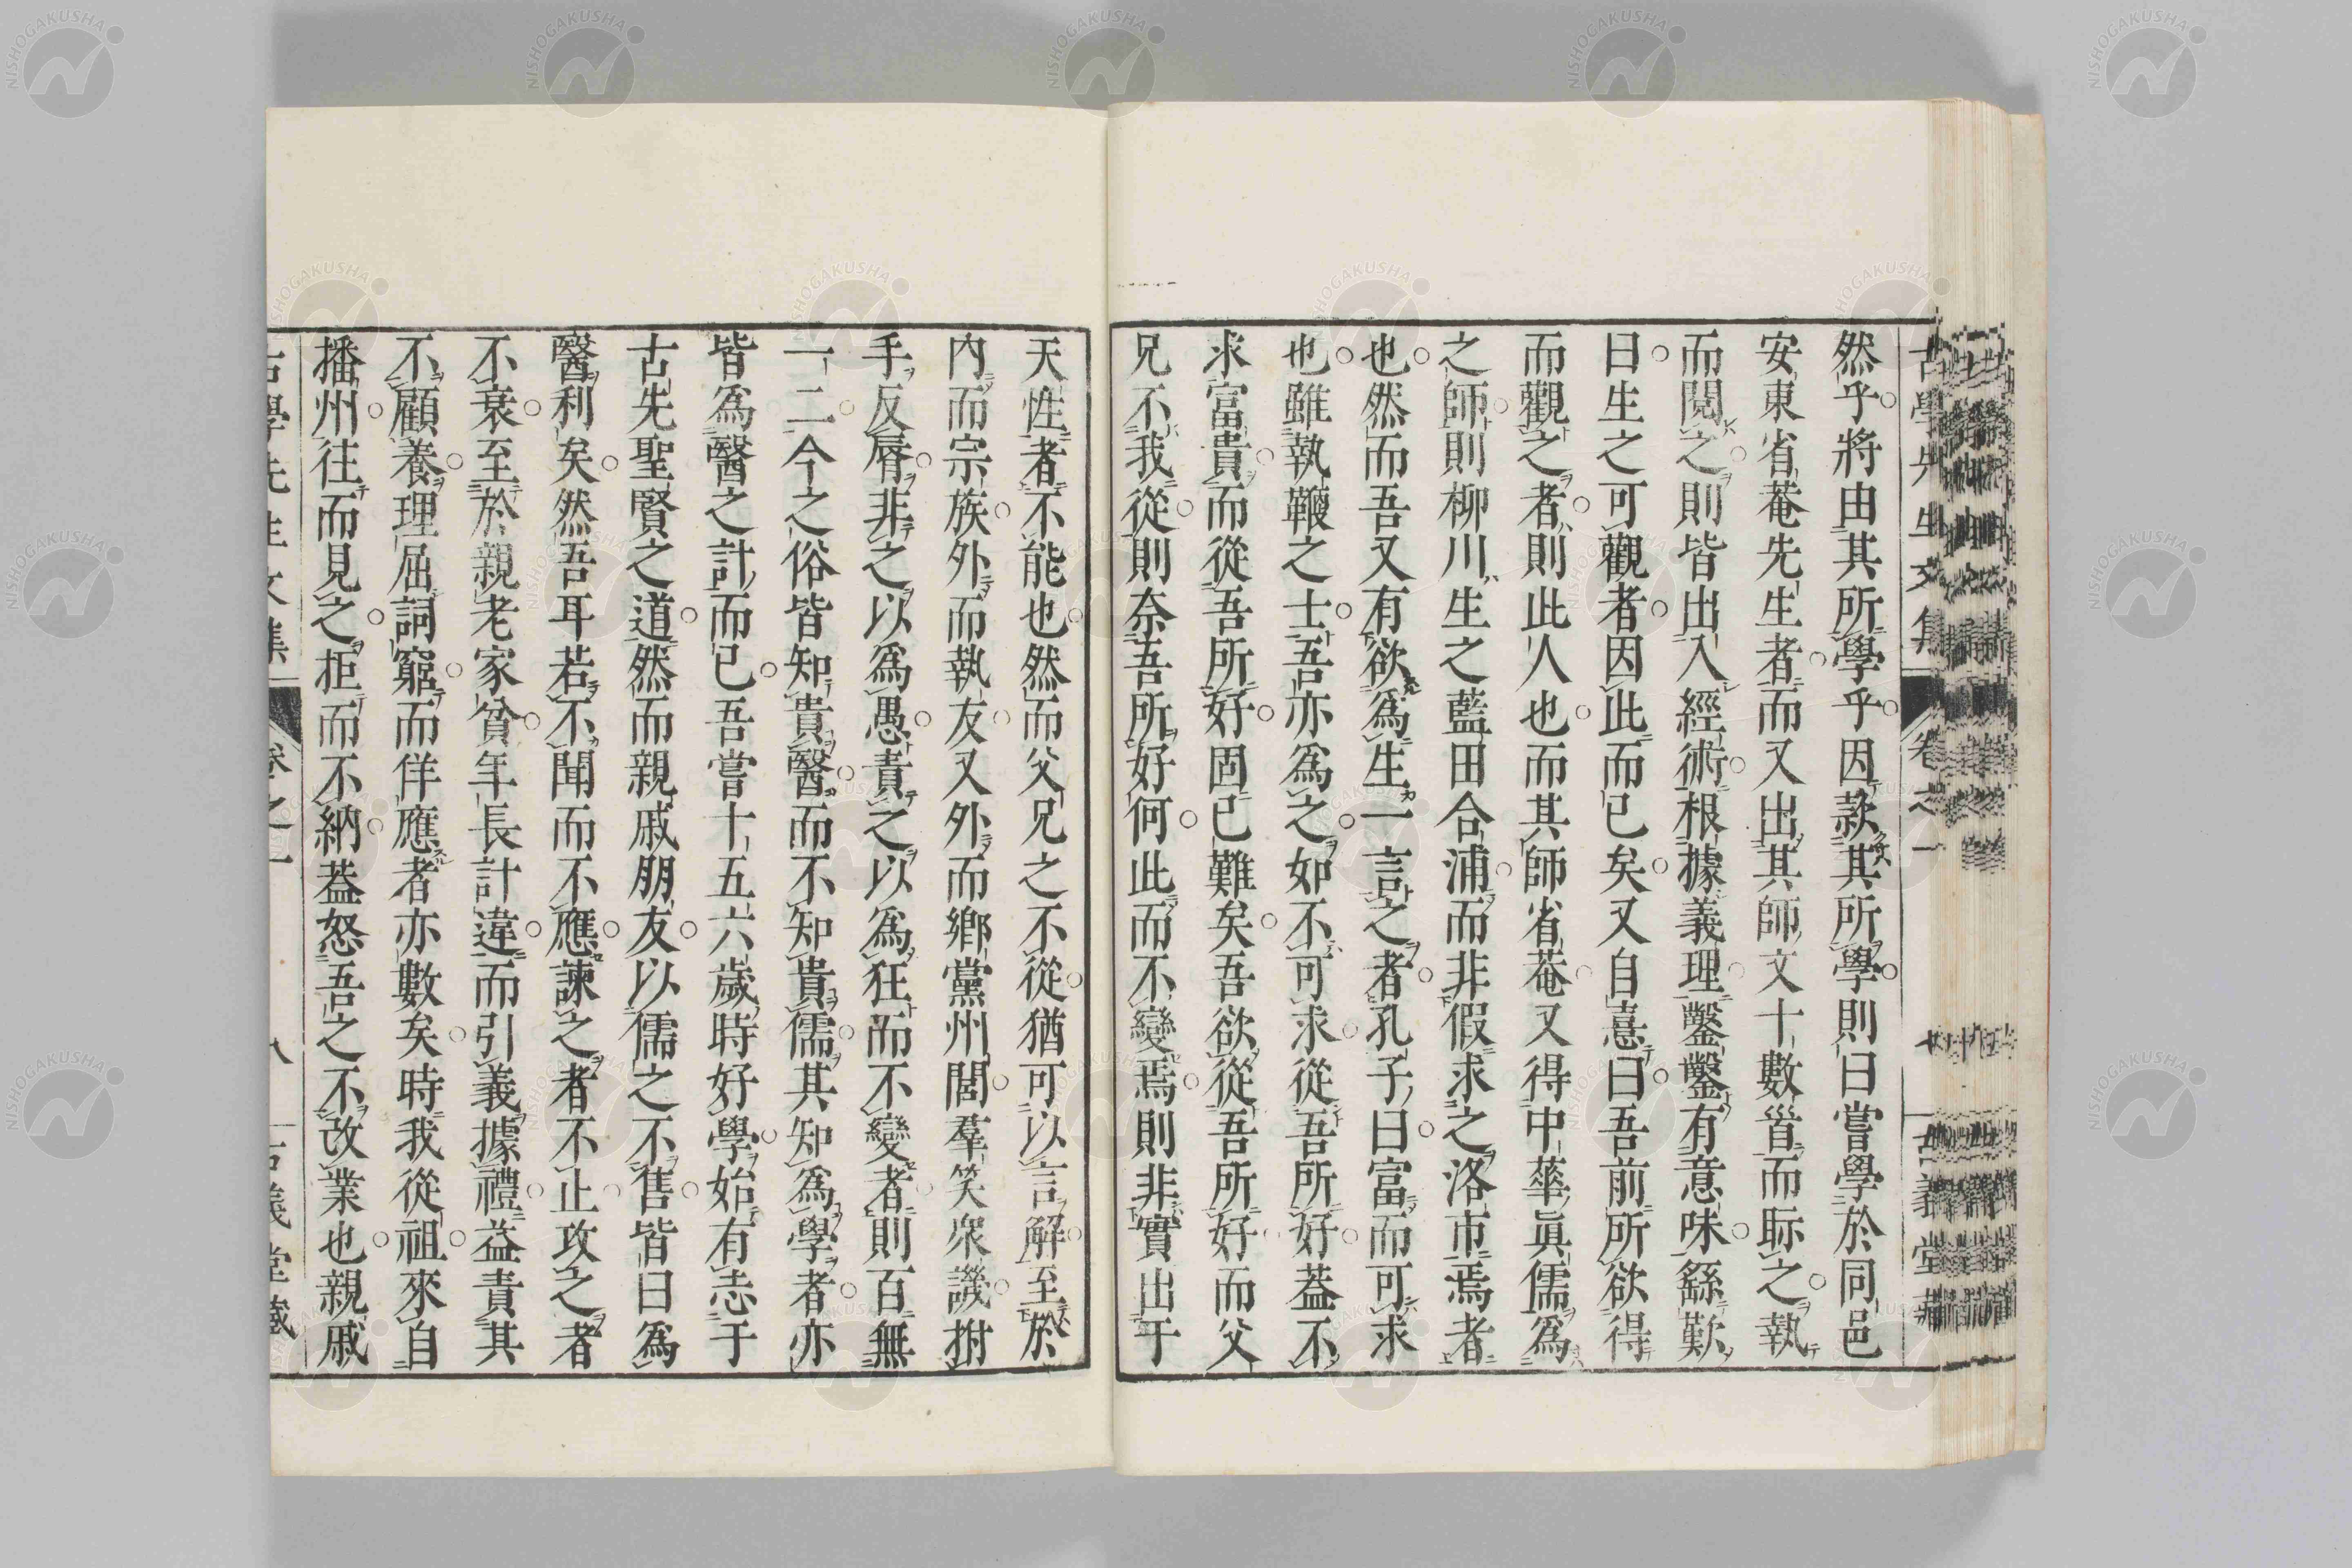 古學先生文集 卷之一 七 古義堂藏
然乎。將由其所學乎。因款其所學。則曰嘗學於同邑
安東省菴先生者。而又出其師文十數首而眎之。執
而閱之。則皆出入經術。根據義理。鑿鑿有意味。繇歎
曰。生之可觀者。因此而已矣。又自憙曰。吾前所欲得
而觀之者。則此人也。而其師省菴。又得中華眞儒為
之師。則柳川生之藍田合浦。而非假求之洛市焉者
也。然而吾又有欲為生一言之者。孔子曰。富而可求
也。雖執鞭之士。吾亦為之。如不可求。從吾所好。葢不
求富貴。而從吾所好。固已難矣。吾欲從吾所好。而父
兄不我從。則奈吾所好何。此而不變焉。則非實出于
天性者。不能也。然而父兄之不從。猶可以言解。至於
內而宗族。外而執友。又外而鄉黨州閭。羣笑衆譏。拊
手反脣。非之以為愚。責之以為狂。而不變者。則百無
一二。今之俗皆知貴醫。而不知貴儒。其知為學者。亦
皆為醫之計而已。吾嘗十五六歲時好學。始有志于
古先聖賢之道。然而親戚朋友。以儒之不售。皆曰為
醫利矣。然吾耳若不聞而不應。諫之者不止。攻之者
不衰。至於親老家貧。年長計違。而引義據禮。益責其
不顧養。理屈詞窮。而佯應者亦數矣。時我從祖。來自
播州。往而見之。拒而不納。葢怒吾之不改業也。親戚
古學先生文集 卷之一 八 古義堂藏
NISHOGAKUSHA